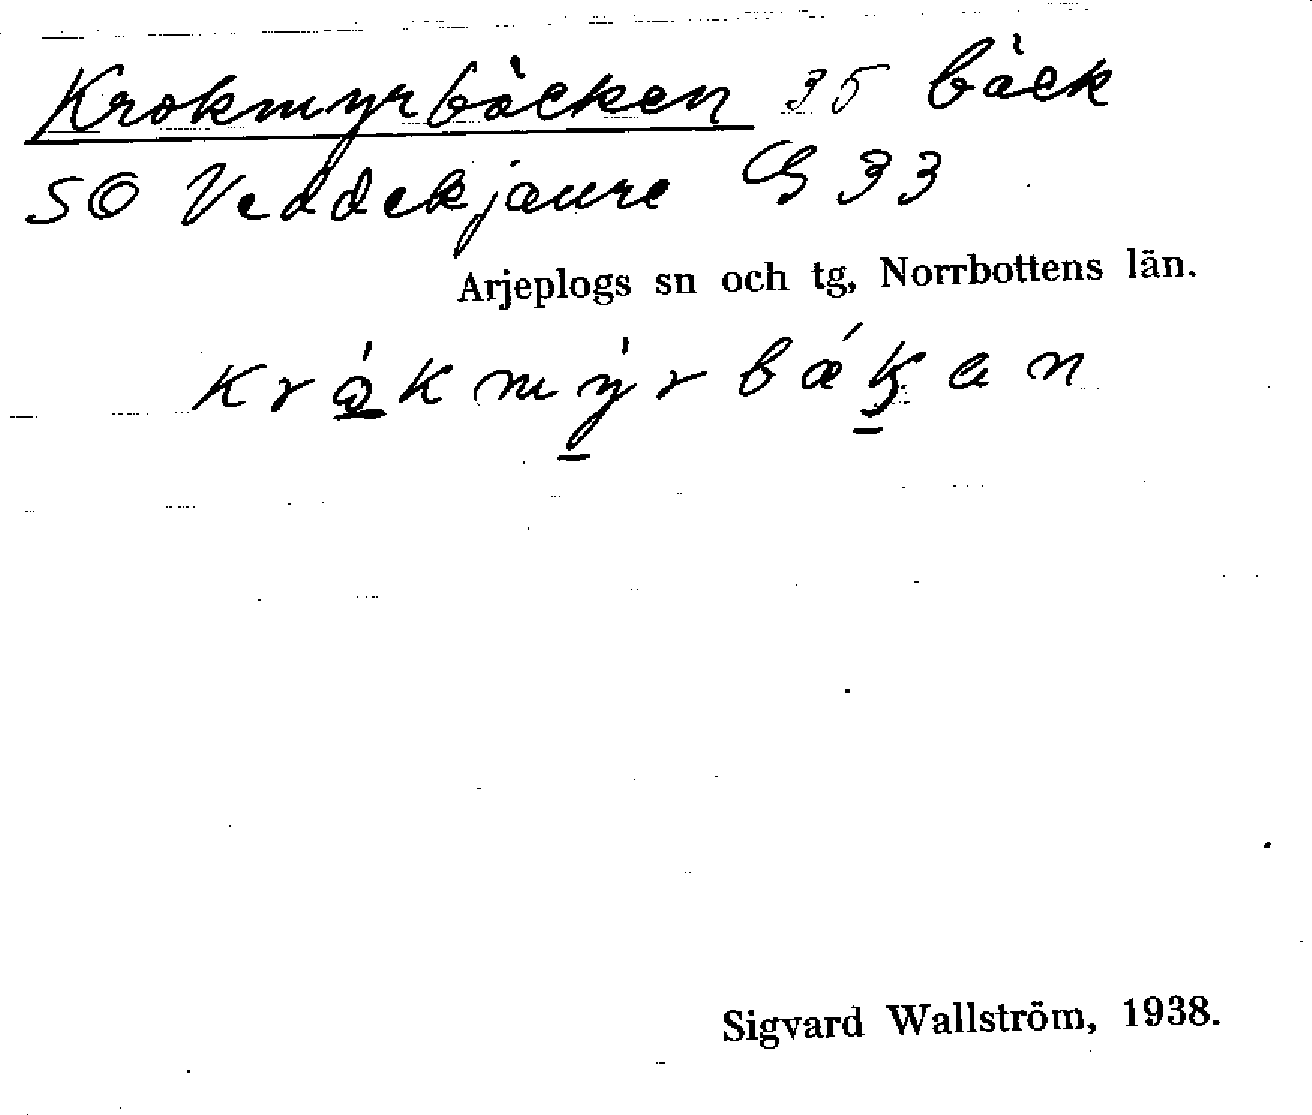 Krokmyrbäcken 35 bäck
SO Veddekjaure G 33
Arjeplogs sn och tg, Norrbottens län.
krɷ̀kmỳrbǽk̠an
Sigvard Wallström, 1938.